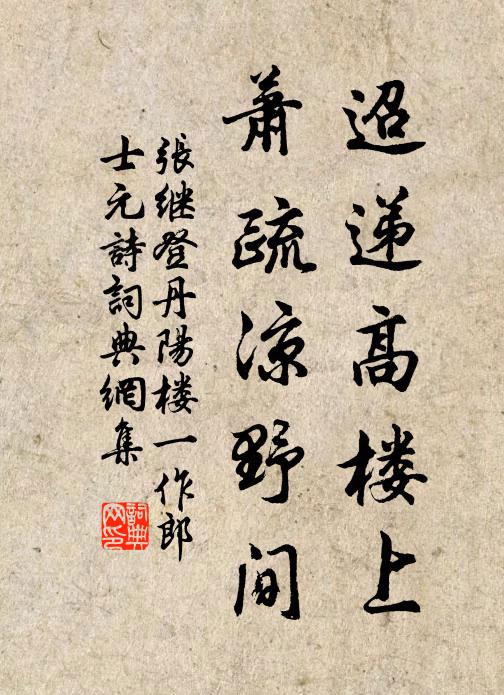 迢递高楼上
萧疏凉野间
張继登丹陽楼一作郎
士元詩詞典網集
詞典網印